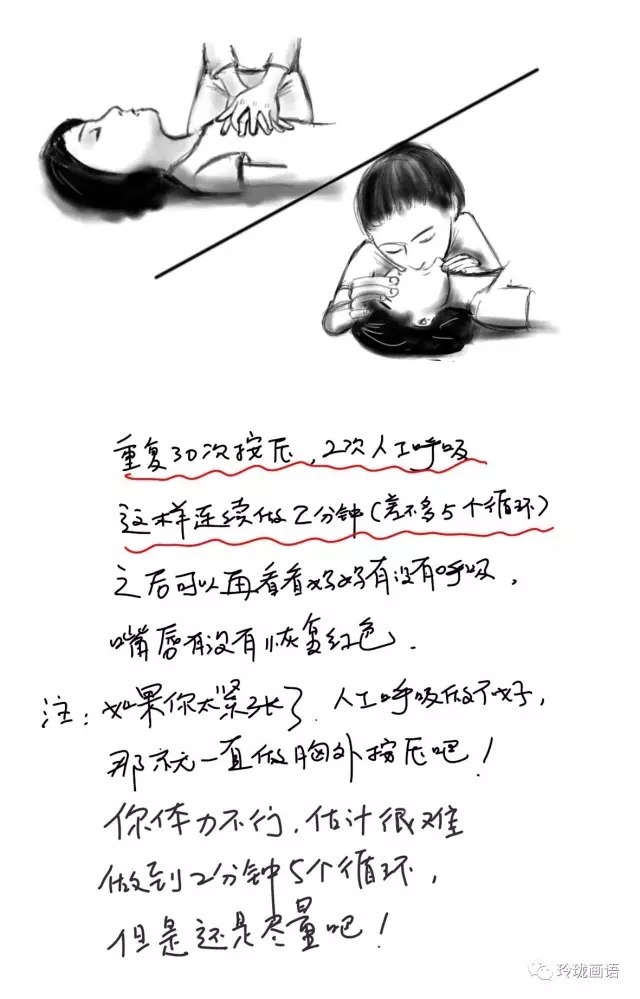 重复30次按压，2次人工呼吸
这样连续做2分钟（差不多5个循环）
之后可以再看看妈妈有没有呼吸，
嘴唇有没有恢复红色.
注：如果你太紧张了.人工呼吸做不好，
那就一直做胸外按压吧！
你体力不行，估计很难
做到2分钟5个循环，
但是还是尽量吧！
玲珑画语